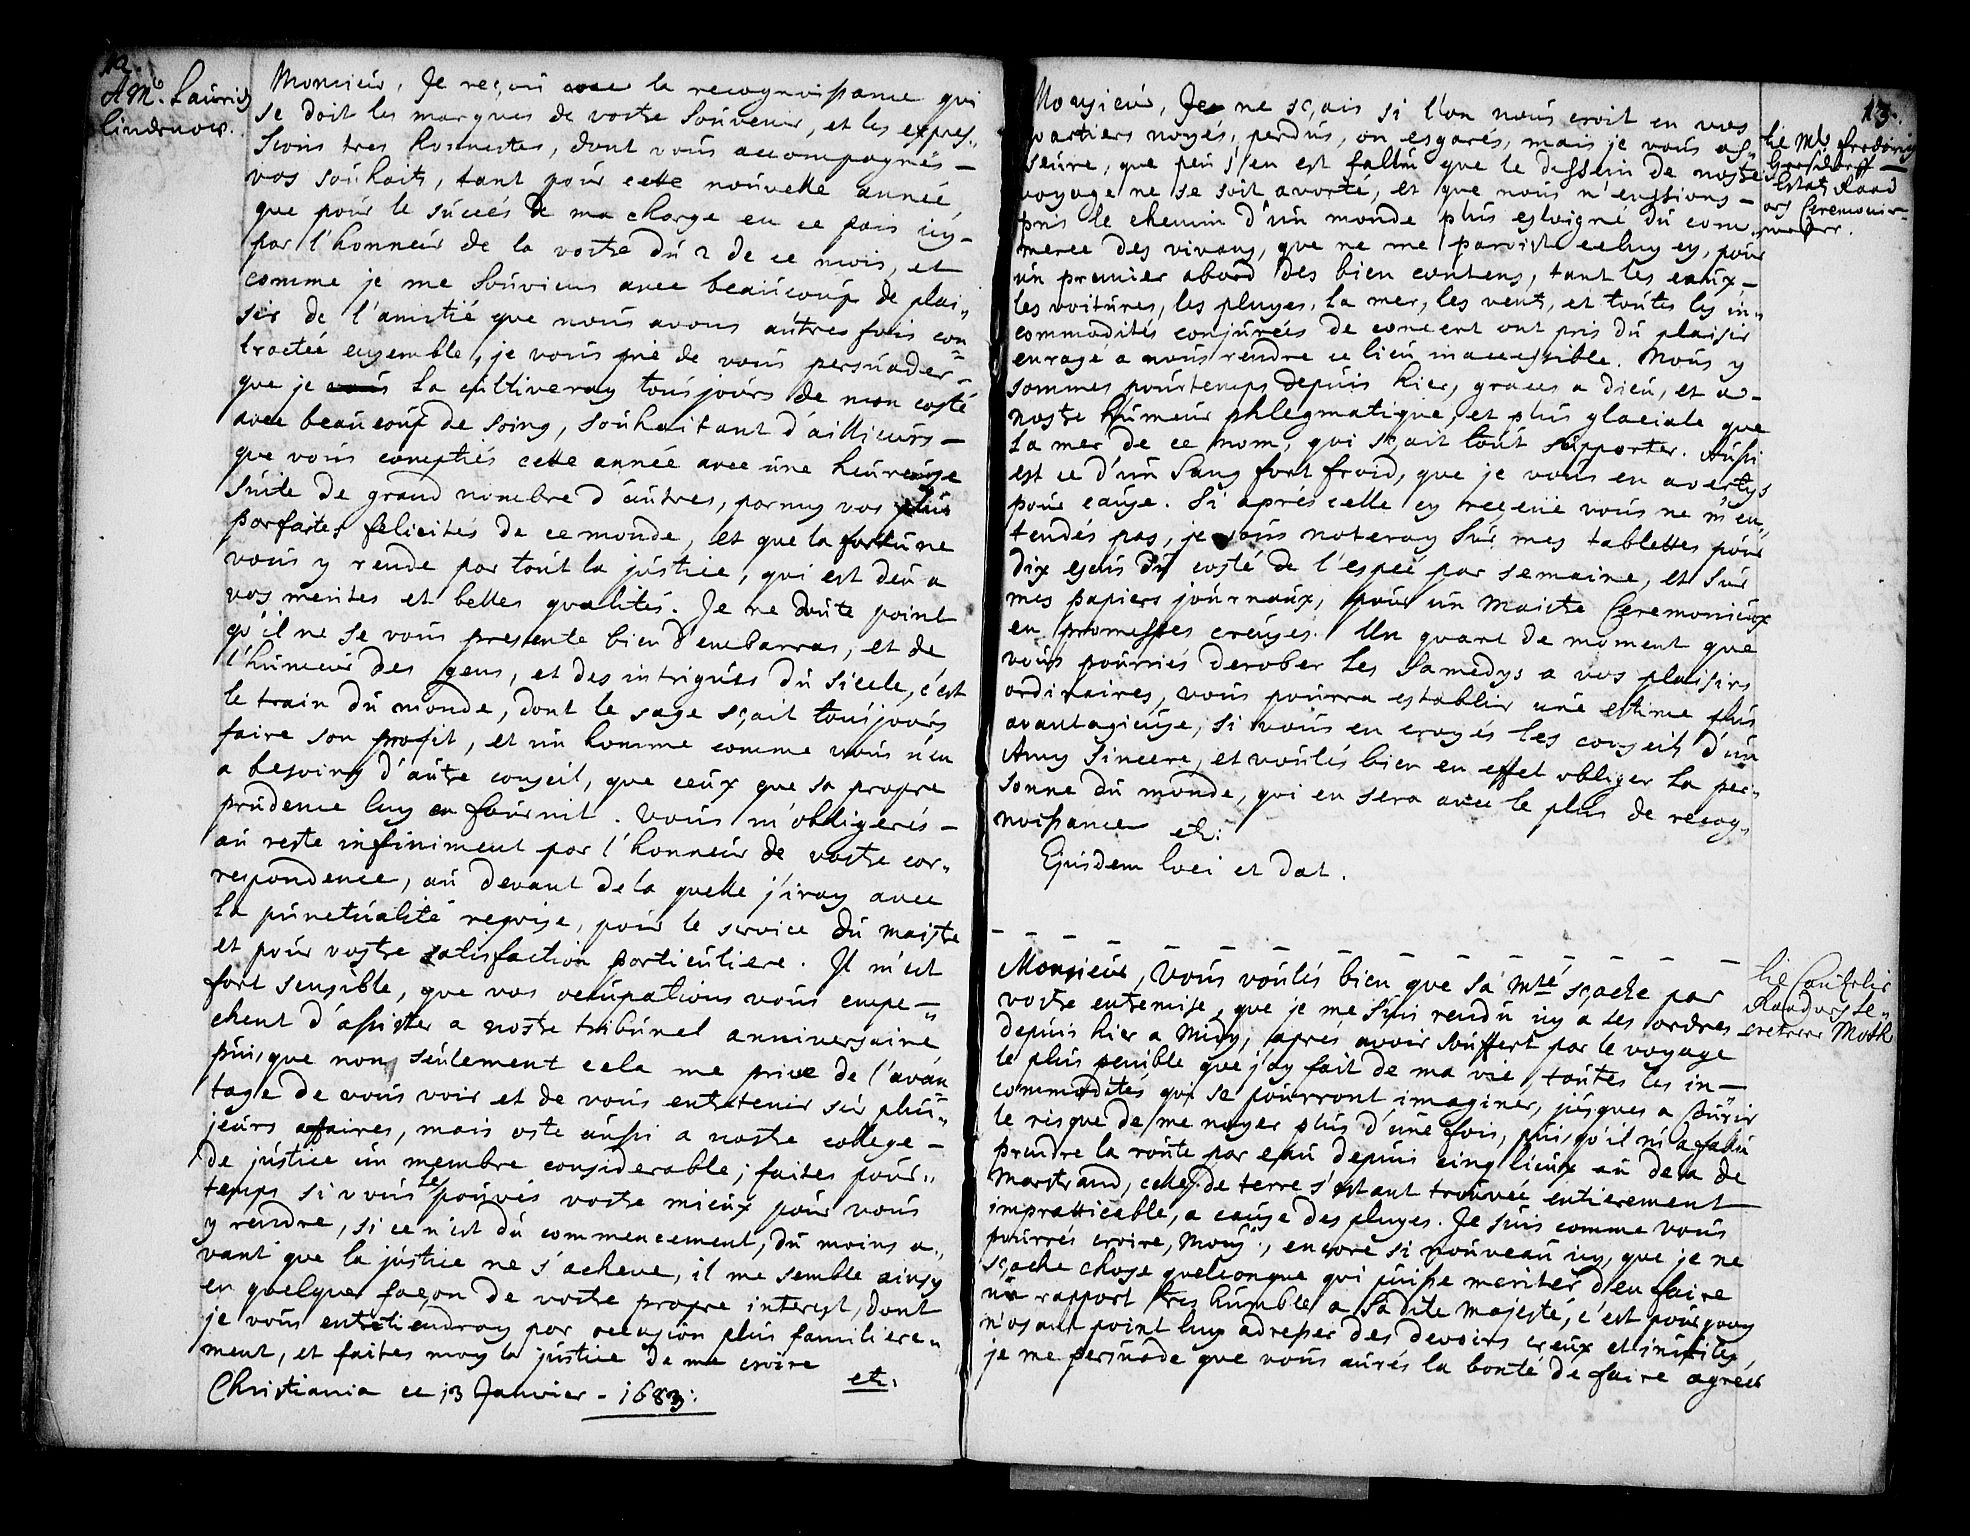 12.
A Mr. Laurids
Lindenow.
Monsieur, Je reçois avec la recognoissance qui
se doit les marques de vostre souvenir, et les expres„
sions tres honnestes, dont vous accompagnés –
vos souhaits, tant pour cette nouvelle année,
que pour le succés de ma charge en ce pais icy –
par l'honneur de la vostre du 2 de ce mois, et
comme je me souviens avec beaucoup de plai„
sir de l'amitié que nous avons autres fois con
tractée ensemble, je vous prie de vous persuader
que je la cultiveray tousjours de mon costé
avec beaucoup de soing, souhaitant d'ailleurs –
que vous comptiés cette année avec une heureuse
suite de grand nombre d'autres, parmy vos plus
parfaites felicités de ce monde, et que la fortune
vous y rende par tout la justice, qui est deu a
vos merites et belles qualités. Je ne doute point
qu'il ne se vous presente bien d'embarras, et de
l'humeur des gens, et des intrigues du siecle, c'est
le train du monde, dont le sage sçait tousjours
faire son profit, et un homme comme vous n'en
a besoing d'autre conseil, que ceux que sa propre
prudence luy en fournit. Vous m'obligerés –
au reste infiniment par l'honneur de vostre cor„
respondence, au devant de la quelle j'iray avec
la punctualité requise, pour le service du maistre
et pour vostre satisfaction particuliere. Il m'est
fort sensible, que vos occupations vous empe„
chent d'assister a nostre tribunel anniversaire
puisque non seulement cela me prive de l'avan
tage de vous voir et de vous entretenir sur plu„
sieurs affaires, mais oste aussi a nostre college –
de justice un membre considerable; faites pour„
temps si vous le pouvés vostre mieux pour vous
y rendre, si ce n'est du commencement, du moins a„
vant que la justice ne s'acheve, il me semble ainsy
en quelque façon de vostre propre interest, dont
je vous entretiendray par occasion plus familiere„
ment, et faites moy la justice de me croire
etc:
Christiania ce 13 Janvier – 1683:
13.
Monsieur, Je ne sçais si l'on nous croit en vos
quartiers noyés, perdus, ou esgarés, mais je vous as„
seure, que peu s'en est fallu que le dessein de nostre
voyage ne se soit avorté, et que nous n'eussions –
pris le chemin d'un monde plus esloigné du com„
merce des vivans, que ne me paroist celuy cy, pour
un premier abord des bien contens, tant les eaux –
les voitures, les pluyes, la mer, les vents, et toutes les in„
commodités conjurées de concert ont pris du plaisir
enragé a nous rendre ce lieu inaccessible. Nous y
sommes pourtemps depuis hier, graces a Dieu, et a –
nostre humeur phlegmatique, et plus glaciale que
la mer de ce nom, qui sçait tout supporter. Aussi
est ce d'un sang fort froid, que je vous en avertys
pour cause. Si aprés celle cy receüe vous ne m'en„
tendés pas, je vous noteray sur mes tablettes pour
dix escus du costé de l'espée par semaine, et sur
mes papiers journaux, pour un Maistre Ceremonieux
en promesses creuses. Un quart de moment que
vous pourriés derober les samedys a vos plaisirs
ordinaires, vous pourra establir une estime plus
avantagieuse, si vous en croyés les conseils d'un
Amy sincere, et voulés bien en effet obliger la per„
sonne du monde, qui en sera avec le plus de recog„
noissance etc:
Ejusdem loci et dat.
til Mr. Frederich
Giersdorff
Estats Raad
og Ceremonie„
mester.
Monsieur, Vous voulés bien que sa Mté sçache par
vostre entremise, que je me suis rendu icy a ses ordres
depuis hier a midy, aprés avoir souffert par le voyage
le plus penible que j'ay fait de ma vie, toutes les in –
commodités qui se pourront imaginer, jusques a courir
le risque de me noyer plus d'une fois, puisqu'il m'a fallu
prendre la route par eau depuis cinq lieux au dela de
Marstrand, celle de terre s'estant trouvée entierement
impratticable, a cause des pluyes. Je suis comme vous
pourrés croire, Monsr., encore si nouveau icy, que je ne
sçache chose quelconque qui puisse meriter d'en faire
un rapport tres humble a Sadite Majesté, c'est pourquoy
n'osant point luy adresser des devoirs creux et inutiles,
je me persuade que vous aurés la bonté de faire agréer
til Cancelie
Raad og Se„
creterer Moth